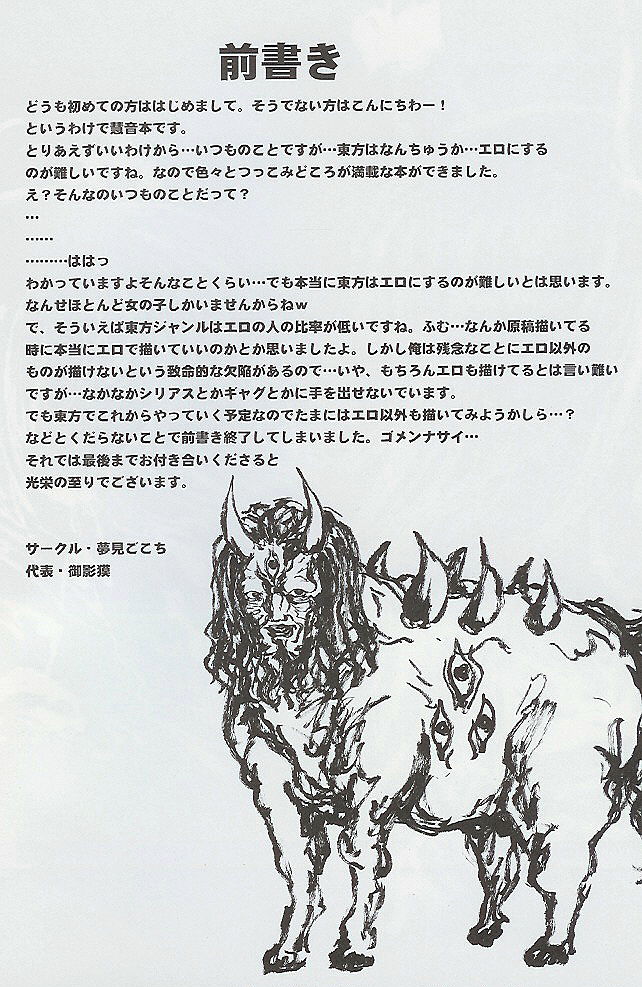 前書き
どうも初めての方ははじめまして。そうでない方はこんにちわー！
というわけで慧音本です。
とりあえずいいわけから…いつものことですが…東方はなんちゅうか…エロにする
のが難しいですね。なので色々とつっこみどころが満載な本ができました。
え？そんなのいつものことだって？
…
……
………ははっ
わかっていますよそんなことくらい…でも本当に東方はエロにするのが難しいとは思います。
なんせほとんど女の子しかいませんからねｗ
で、そういえば東方ジャンルはエロの人の比率が低いですね。ふむ…なんか原稿描いてる
時に本当にエロで描いていいのかとか思いましたよ。しかし俺は残念なことにエロ以外の
ものが描けないという致命的な欠陥があるので…いや、もちろんエロも描けてるとは言い難い
ですが…なかなかシリアスとかギャグとかに手を出せないでいます。
でも東方でこれからやっていく予定なのでたまにはエロ以外も描いてみようかしら…？
などとくだらないことで前書き終了してしまいました。ゴメンナサイ…
それでは最後までお付き合いくださると
光栄の至りでございます。
サークル・夢見ごこち
代表・御影獏